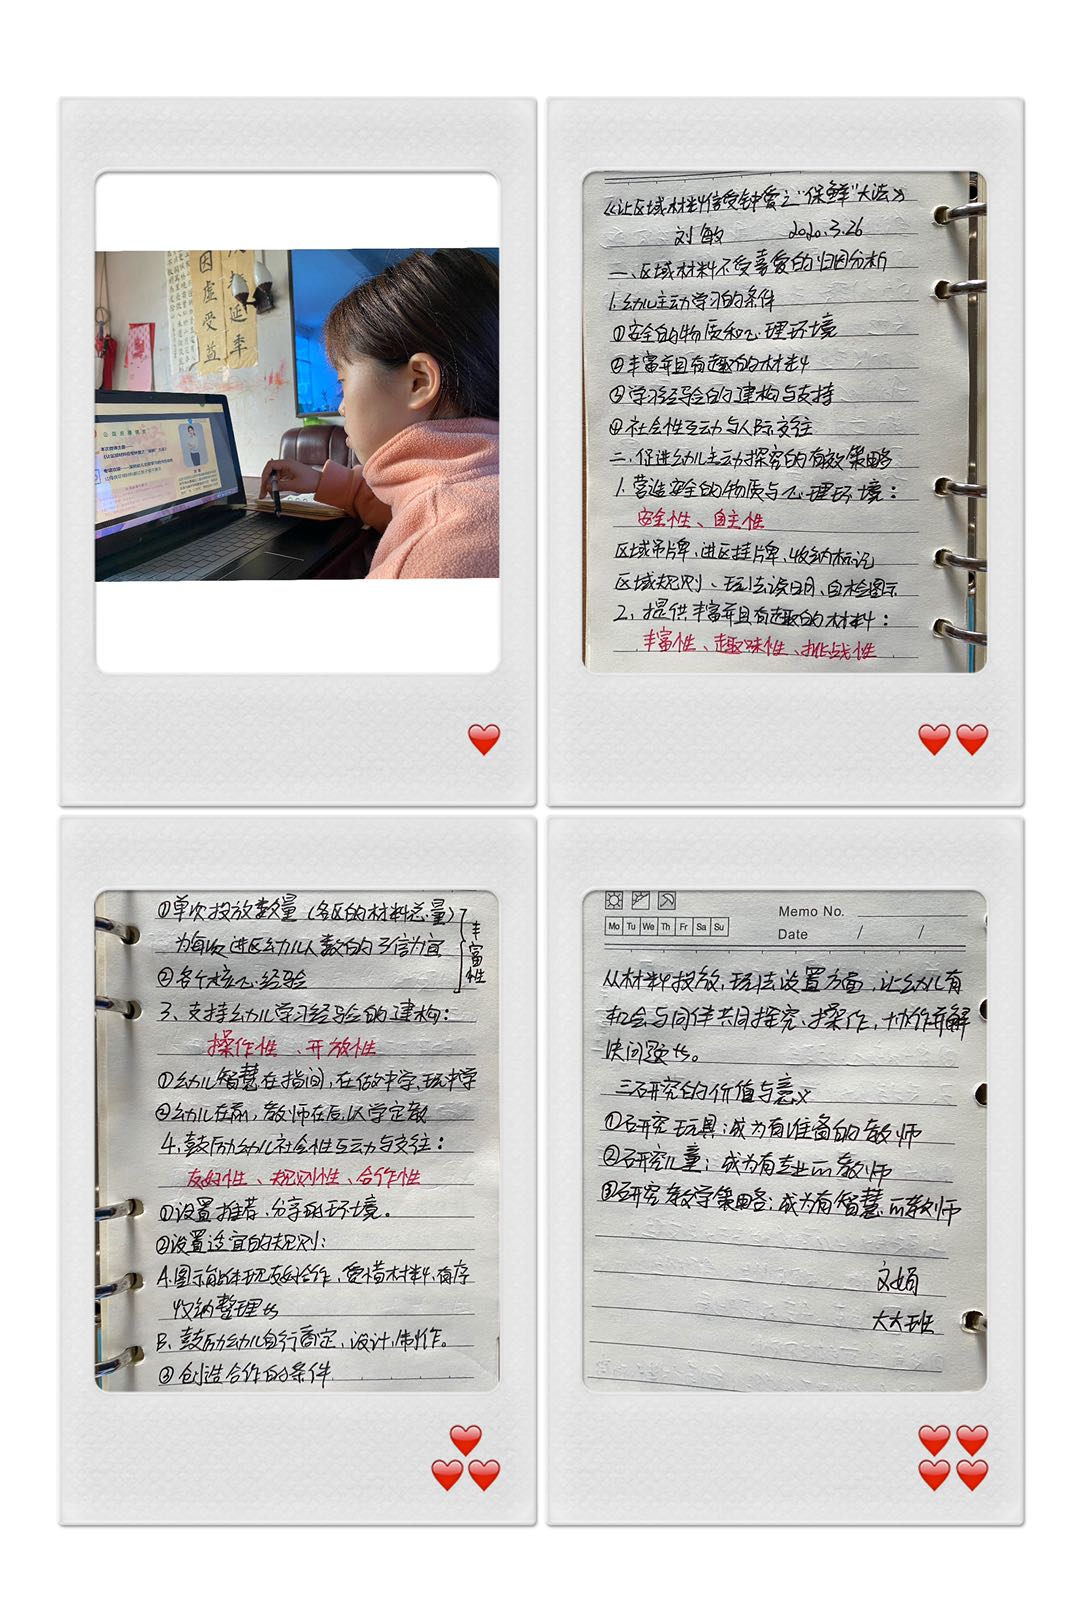 因虚受益
延年
《让区域材料倍受钟爱之“保鲜”大法》
刘敏 2020.3.26
一、区域材料不受喜爱的归因分析
1.幼儿主动学习的条件
①安全的物质和心理环境
②丰富并且有趣的材料
③学习经验的建构与支持
④社会性互动与人际交往
二、促进幼儿主动探究的有效策略
1.营造安全的物质与心理环境：
安全性、自主性
区域吊牌、进区挂牌、收纳标记
区域规则、玩法说明、自检图示
2、提供丰富并且有趣的材料：
丰富性、趣味性、挑战性
①单次投放数量（各区的材料总量）
为每次进区幼儿人数的3倍为宜
②各个核心经验
丰富性
3、支持幼儿学习经验的建构：
操作性、开放性
①幼儿智慧在指间，在做中学、玩中学
②幼儿在前，教师在后，以学定教
4.鼓励幼儿社会性互动与交往：
友好性、规则性、合作性
①设置推荐、分享的环境。
②设置适宜的规则：
A.图示能体现友好合作，爱惜材料，有序
收纳整理等
B、鼓励幼儿自行商定，设计，制作。
③创造合作的条件
Mo Tu We Th Fr Sa Su
Memo No.
Date / /
从材料投放，玩法设置方面，让幼儿有
机会与同伴共同探究、操作，协作并解
决问题等。
三、研究的价值与意义
①研究玩具：成为有准备的教师
②研究儿童：成为有专业的教师
③研究教学策略：成为有智慧的教师
文娟
大大班